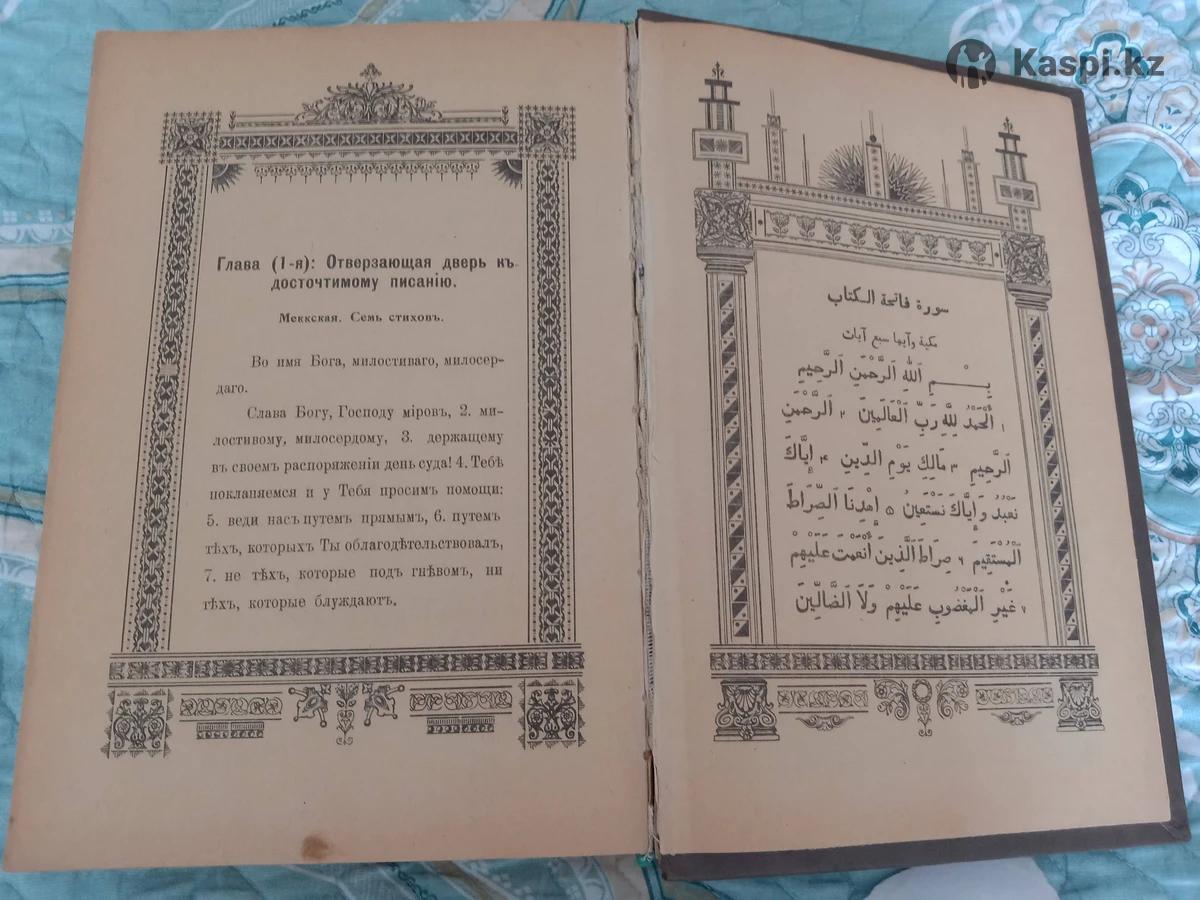 Kaspi.kz
Глава (1-я): Отверзающая дверь къ
досточтимому писанію.
Меккская. Семь стиховъ.
Во имя Бога, милостиваго, милосер-
даго.
Слава Богу, Господу міровъ, 2. ми-
лостивому, милосердому, 3. держащему
въ своемъ распоряженіи день суда! 4. Тебѣ
покланяемся и у Тебя просимъ помощи:
5. веди насъ путемъ прямымъ, 6. путемъ
тѣхъ, которыхъ Ты облагодѣтельствовалъ,
7. не тѣхъ, которые подъ гнѣвомъ, ни
тѣхъ, которые блуждаютъ.
سورة فاتحة الكتاب
مكية وآيها سبع آيات
بِسْمِ اَللّٰهِ اَلرَّحْمٰنِ اَلرَّحِيمِ
١ اَلْحَمْدُ لِلّٰهِ رَبِّ اَلْعَالَمِينَ ٢ اَلرَّحْمٰنِ
اَلرَّحِيمِ ٣ مَالِكِ يَوْمِ الدِّينِ ٤ إِيَّاكَ
نَعْبُدُ وَإِيَّاكَ نَسْتَعِينُ ٥ إِهْدِنَا اَلصِّرَاطَ
اَلْمُسْتَقِيمَ ٦ صِرَاطَ اَلَّذِينَ أَنْعَمْتَ عَلَيْهِمْ
٧ غَيْرِ اَلْمَغْضُوبِ عَلَيْهِمْ وَلَا اَلضَّالِّينَ